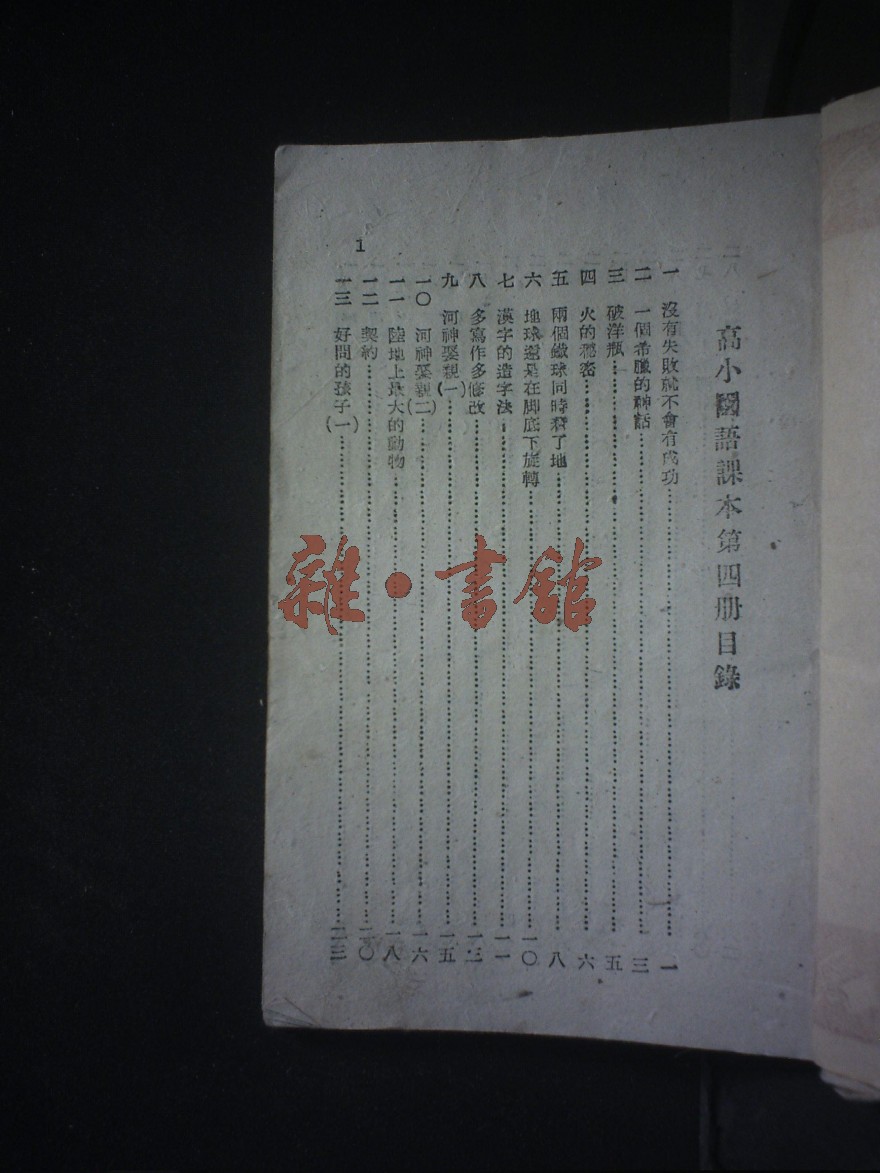 高小國語課本第四册目錄
一 沒有失敗就不會有成功……一
二 一個希臘的神話……三
三 破洋瓶……五
四 火的秘密……六
五 兩個鐵球同時着了地……八
六 地球還是在脚底下旋轉……一〇
七 漢字的造字法……一一
八 多寫作多修改……一三
九 河神娶親(一)……一五
一〇 河神娶親(二)……一六
一一 陸地上最大的動物……一八
一二 契約……二〇
一三 好問的孩子(一)……二三
1
雜·書館